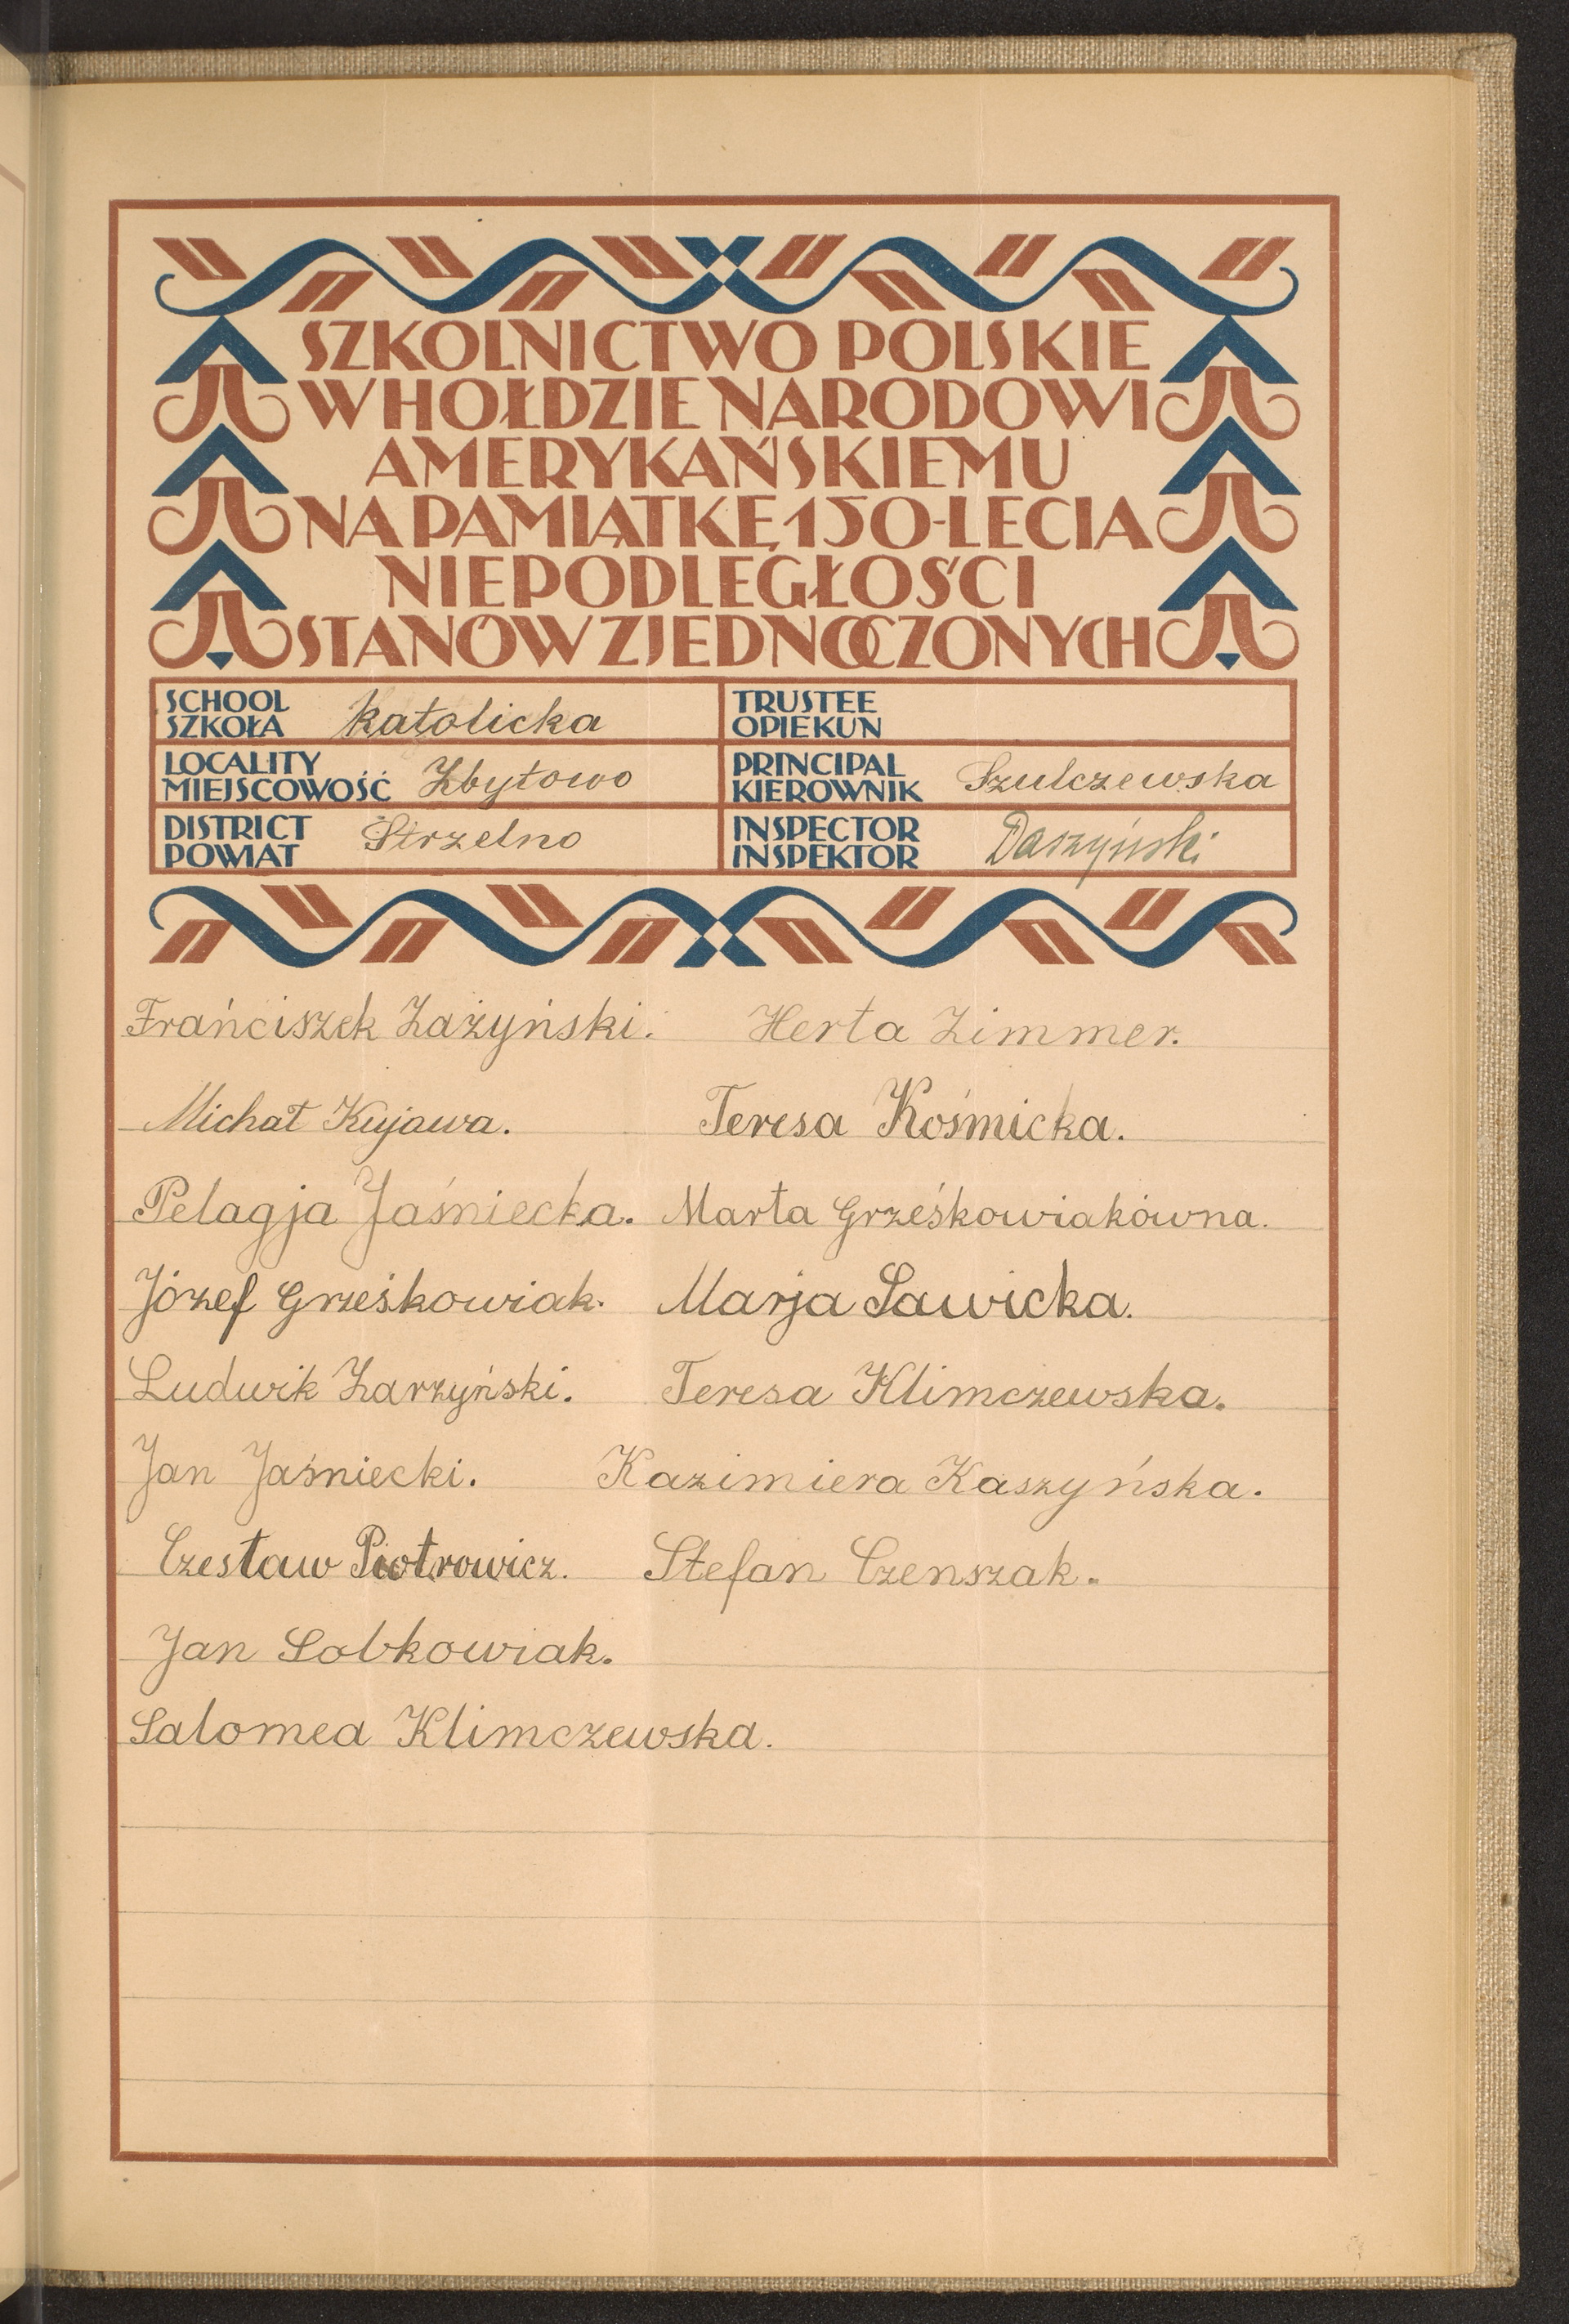 SZKOLNICTWO POLSKIE
W HOŁDZIE NARODOWI
AMERYKAŃSKIEMU
NA PAMIĄTKĘ 150-LECIA
NIEPODLEGŁOŚCI
STANÓW ZJEDNOCZONYCH
SCHOOL
SZKOŁA Katolicka
TRUSTEE
OPIEKUN
LOCALITY
MIEJSCOWOŚĆ Zbytowo
PRINCIPAL
KIEROWNIK Szulczewska
DISTRICT
POWIAT Strzelno
INSPECTOR
INSPEKTOR Daszyński
Frańciszek Zażyński. Herta Zimmer.
Michał Kujawa. Teresa Kośmicka.
Pelagja Jaśniecka. Marta Grześkowiakówna.
Józef Grześkowiak. Marja Sawicka.
Ludwik Zarzyński. Teresa Klimczewska.
Jan Jaśniecki. Kazimiera Kaszyńska.
Czesław Piotrowicz. Stefan Czenszak.
Jan Sobkowiak.
Salomea Klimczewska.